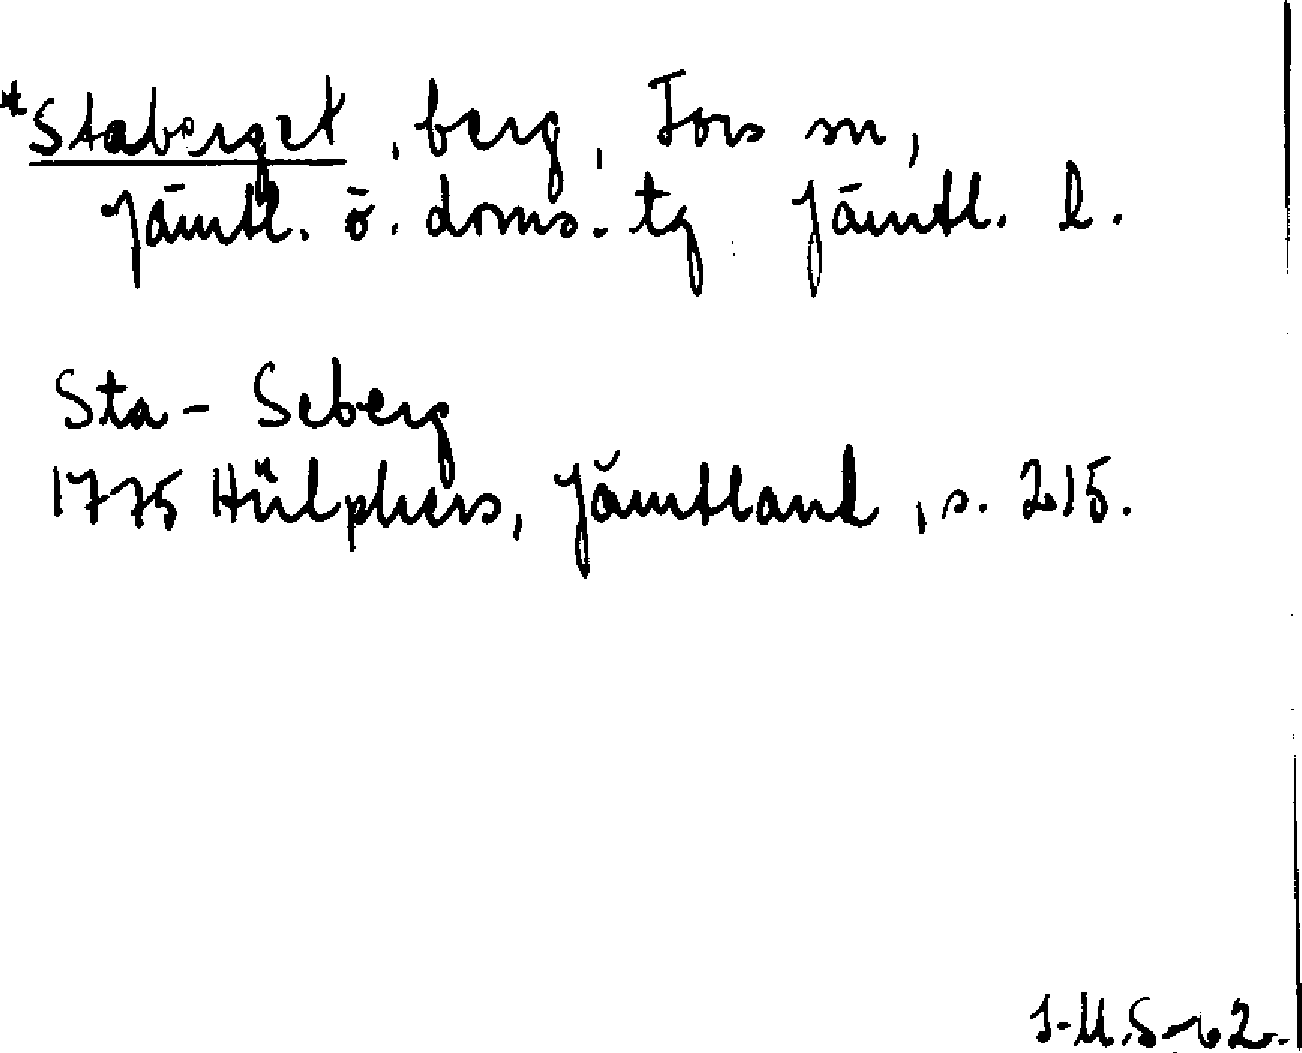 *Staberget, berg, Fors sn,
Jämtl. ö. doms. tg Jämtl. l.
Sta- Seberg
1775 Hülphers, Jämtland, s. 215.
I-M.S-62.